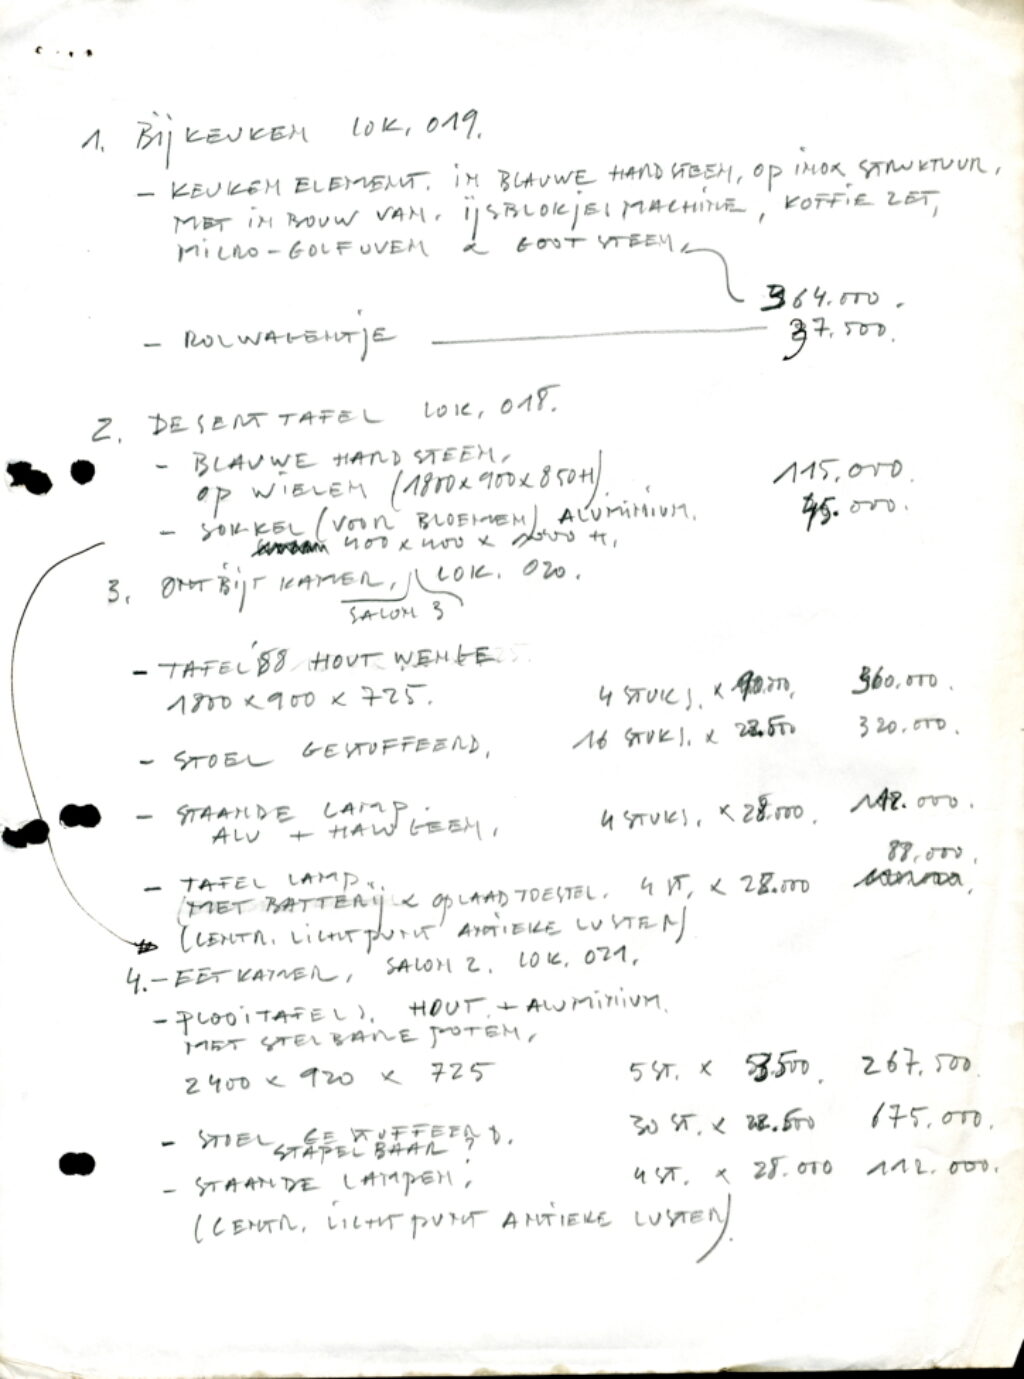 1. BIJKEUKEN LOK. 019.
- KEUKEN ELEMENT. IN BLAUWE HARDSTEEN, OP INOX STRUKTUUR,
MET INBOUW VAN. IJSBLOKJES MACHINE, KOFFIE ZET,
MICRO-GOLFOVEN & GOOTSTEEN,
364.000.
- ROLWAGENTJE 37.500.
2. DESERTTAFEL LOK. 018.
- BLAUWE HARDSTEEN,
OP WIELEN (1800 x 900 x 850H) 115.000.
- SOKKEL (VOOR BLOEMEN) ALUMINIUM. 45.000.
400 x 400 x H,
3. ONTBIJT KAMER, LOK. 020.
SALON 3
- TAFEL '88 HOUT WENGE
1800 x 900 x 725. 4 STUKS. x 90.000, 360.000.
- STOEL GESTOFFEERD, 16 STUKS. x 320.000.
- STAANDE LAMP.
ALU + HALOGEEN, 4 STUKS. x 28.000. 112.000.
88.000.
- TAFEL LAMP..
(MET BATTERIJ & OPLAADTOESTEL. 4 ST. x 28.000
(CENTR. LICHTPUNT ANTIEKE LUSTER)
4. - EETKAMER, SALON 2. LOK. 021.
- PLOOITAFELS. HOUT + ALUMINIUM.
MET STELBARE POTEN,
2400 x 920 x 725 5 ST. x 53.500. 267.500.
- STOEL GESTOFFEERD. 30 ST. x 22.500 675.000.
STAPELBAAR?
- STAANDE LAMPEN, 4 ST. x 28.000 112.000.
(CENTR. LICHTPUNT ANTIEKE LUSTER).